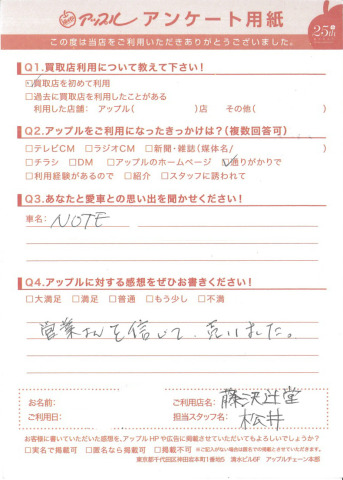 アップル アンケート用紙
25th
この度は当店をご利用いただきありがとうございました。
Q1.買取店利用について教えて下さい！
☑買取店を初めて利用
□過去に買取店を利用したことがある
利用した店舗: アップル( )店 その他( )
Q2.アップルをご利用になったきっかけは？(複数回答可)
□テレビCM □ラジオCM □新聞・雑誌(媒体名/ )
□チラシ □DM □アップルのホームページ ☑通りがかりで
□利用経験があるので □紹介 □スタッフに誘われて
Q3.あなたと愛車との思い出を聞かせください！
車名: NOTE
Q4.アップルに対する感想をぜひお書きください！
□大満足 □満足 □普通 □もう少し □不満
営業さんを信じて、売りました。
お名前: ご利用店名: 藤沢辻堂
ご利用日: 担当スタッフ名: 松井
お客様に書いていただいた感想を、アップルHPや広告に掲載させていただいてもよろしいでしょうか？
□実名で掲載可 □匿名なら掲載可 □掲載不可 ※ご記入がない場合は匿名での掲載とさせていただきます。
東京都千代田区神田岩本町1番地5 清水ビル6F アップルチェーン本部